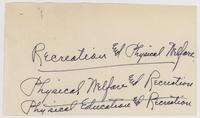 Recreation & Physical Welfare
Physical Welfare & Recreation
Physical Education & Recreation